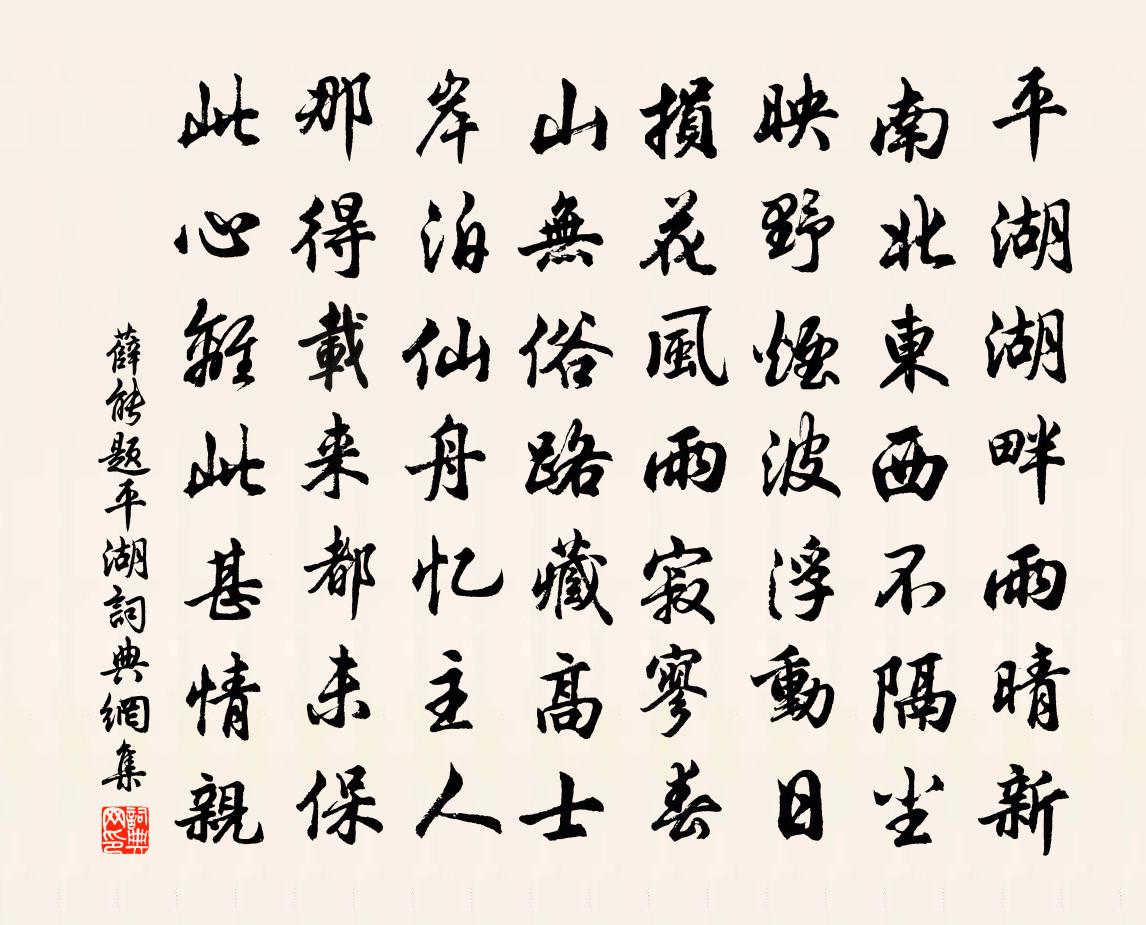 平湖湖畔雨晴新
南北東西不隔尘
映野煙波浮動日
損花風雨寂寥春
山無俗路藏高士
岸泊仙舟忆主人
那得載来都未保
此心離此甚情親
薛能题平湖詞典網集
詞典网印